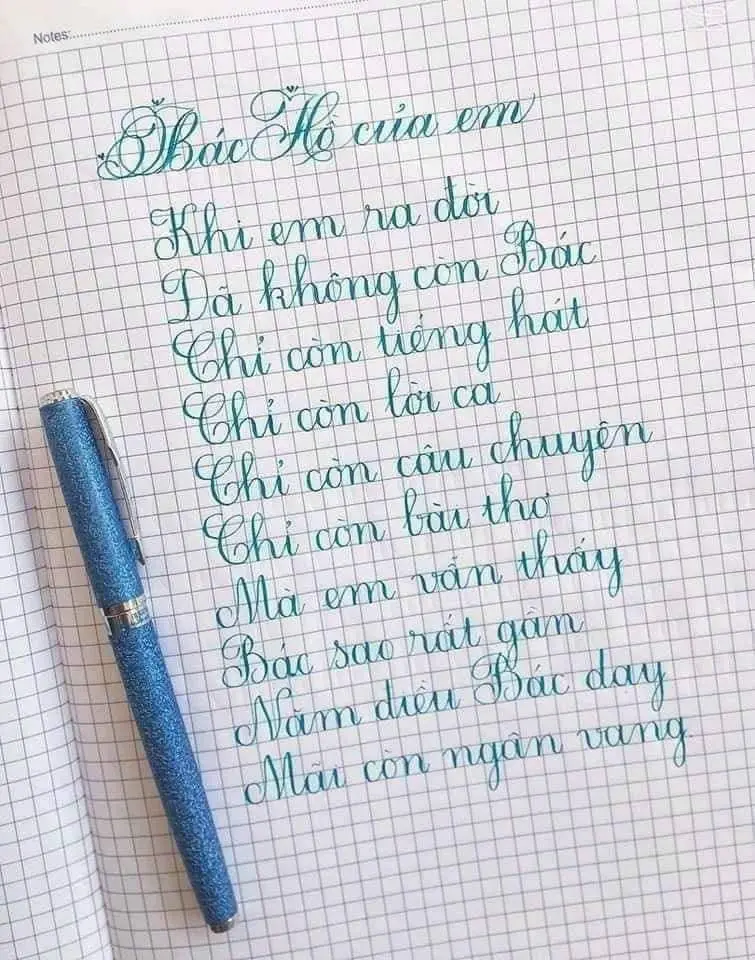 Notes:
Bác Hồ của em
Khi em ra đời
Đã không còn Bác
Chỉ còn tiếng hát
Chỉ còn lời ca
Chỉ còn câu chuyện
Chỉ còn bài thơ
Mà em vẫn thấy
Bác sao rất gần
Năm điều Bác dạy
Mãi còn ngân vang